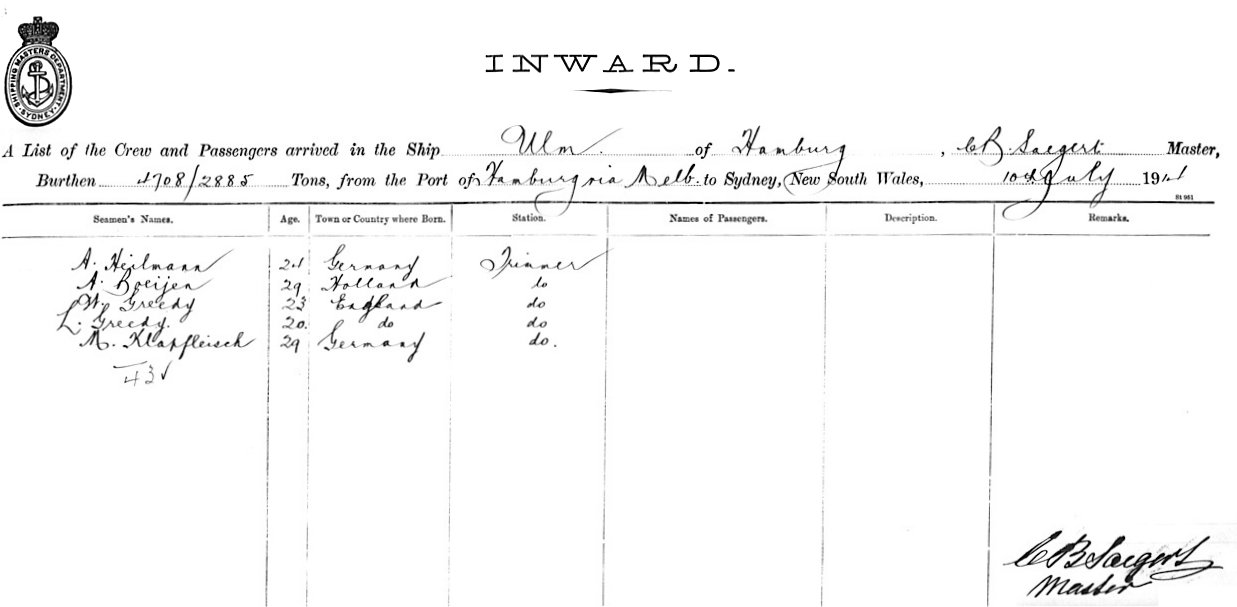 SHIPPING MASTERS DEPARTMENT
SYDNEY
INWARD.
A List of the Crew and Passengers arrived in the Ship Ulm. of Hamburg, C B. Saegert Master,
Burthen 4708/2885 Tons, from the Port of Hamburg via Melb. to Sydney, New South Wales, 10th July 191
St 961
Seamen's Names. Age. Town or Country where Born. Station. Names of Passengers. Description. Remarks.
A. Heilmann 24 Germany Trimmer
A. Boeijen 29 Holland do
W. Greedy 23 England do
L. Greedy. 20. do do
M. Klapfleisch 29 Germany do.
43
C B Saegert
Master